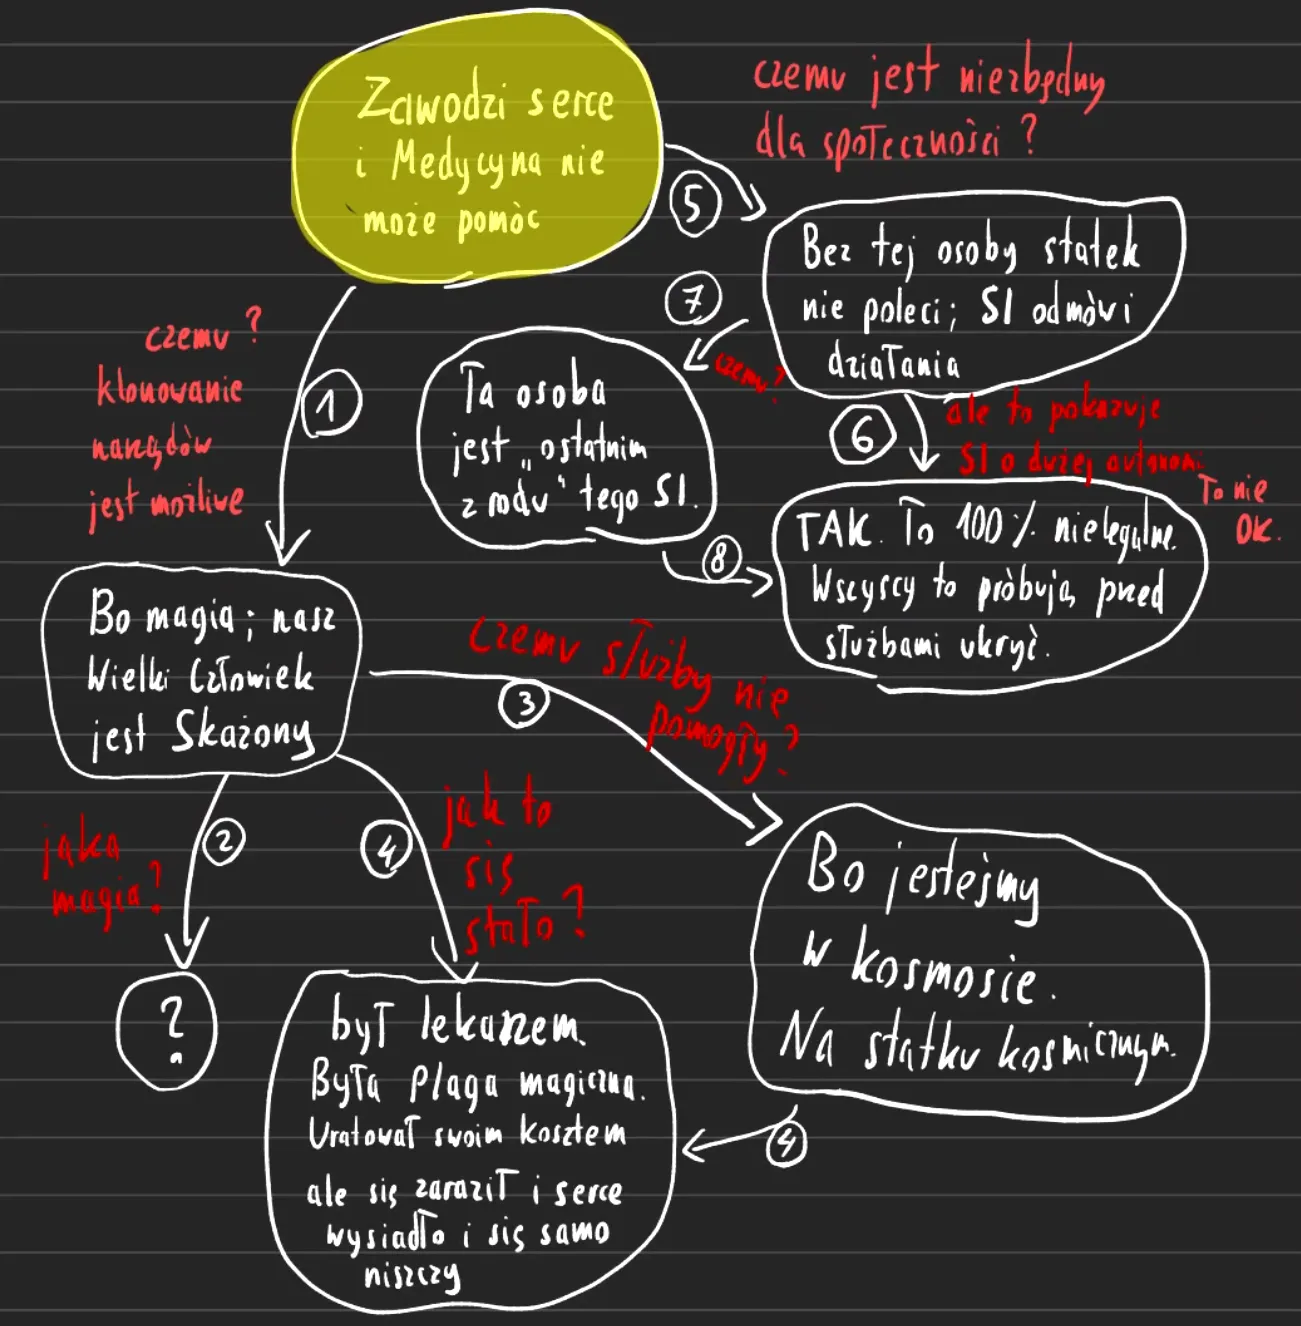 Zawodzi serce
i Medycyna nie
może pomóc
czemu jest niezbędny
dla społeczności?
5
Bez tej osoby statek
nie poleci; SI odmówi
działania
7
czemu?
Ta osoba
jest „ostatnim
z rodu" tego SI.
6
ale to pokazuje
SI o dużej autonomi
To nie
OK.
8
TAK. To 100% nielegalne.
Wszyscy to próbują przed
służbami ukryć.
czemu?
klonowanie
narządów
jest możliwe
1
Bo magia; nasz
Wielki Człowiek
jest Skażony
czemu służby nie
pomogły?
3
jaka
magia?
2
?
4
jak to
się
stało?
Bo jesteśmy
w kosmosie.
Na statku kosmicznym.
4
był lekarzem.
Była Plaga magiczna.
Uratował swoim kosztem
ale się zaraził i serce
wysiadło i się samo
niszczy